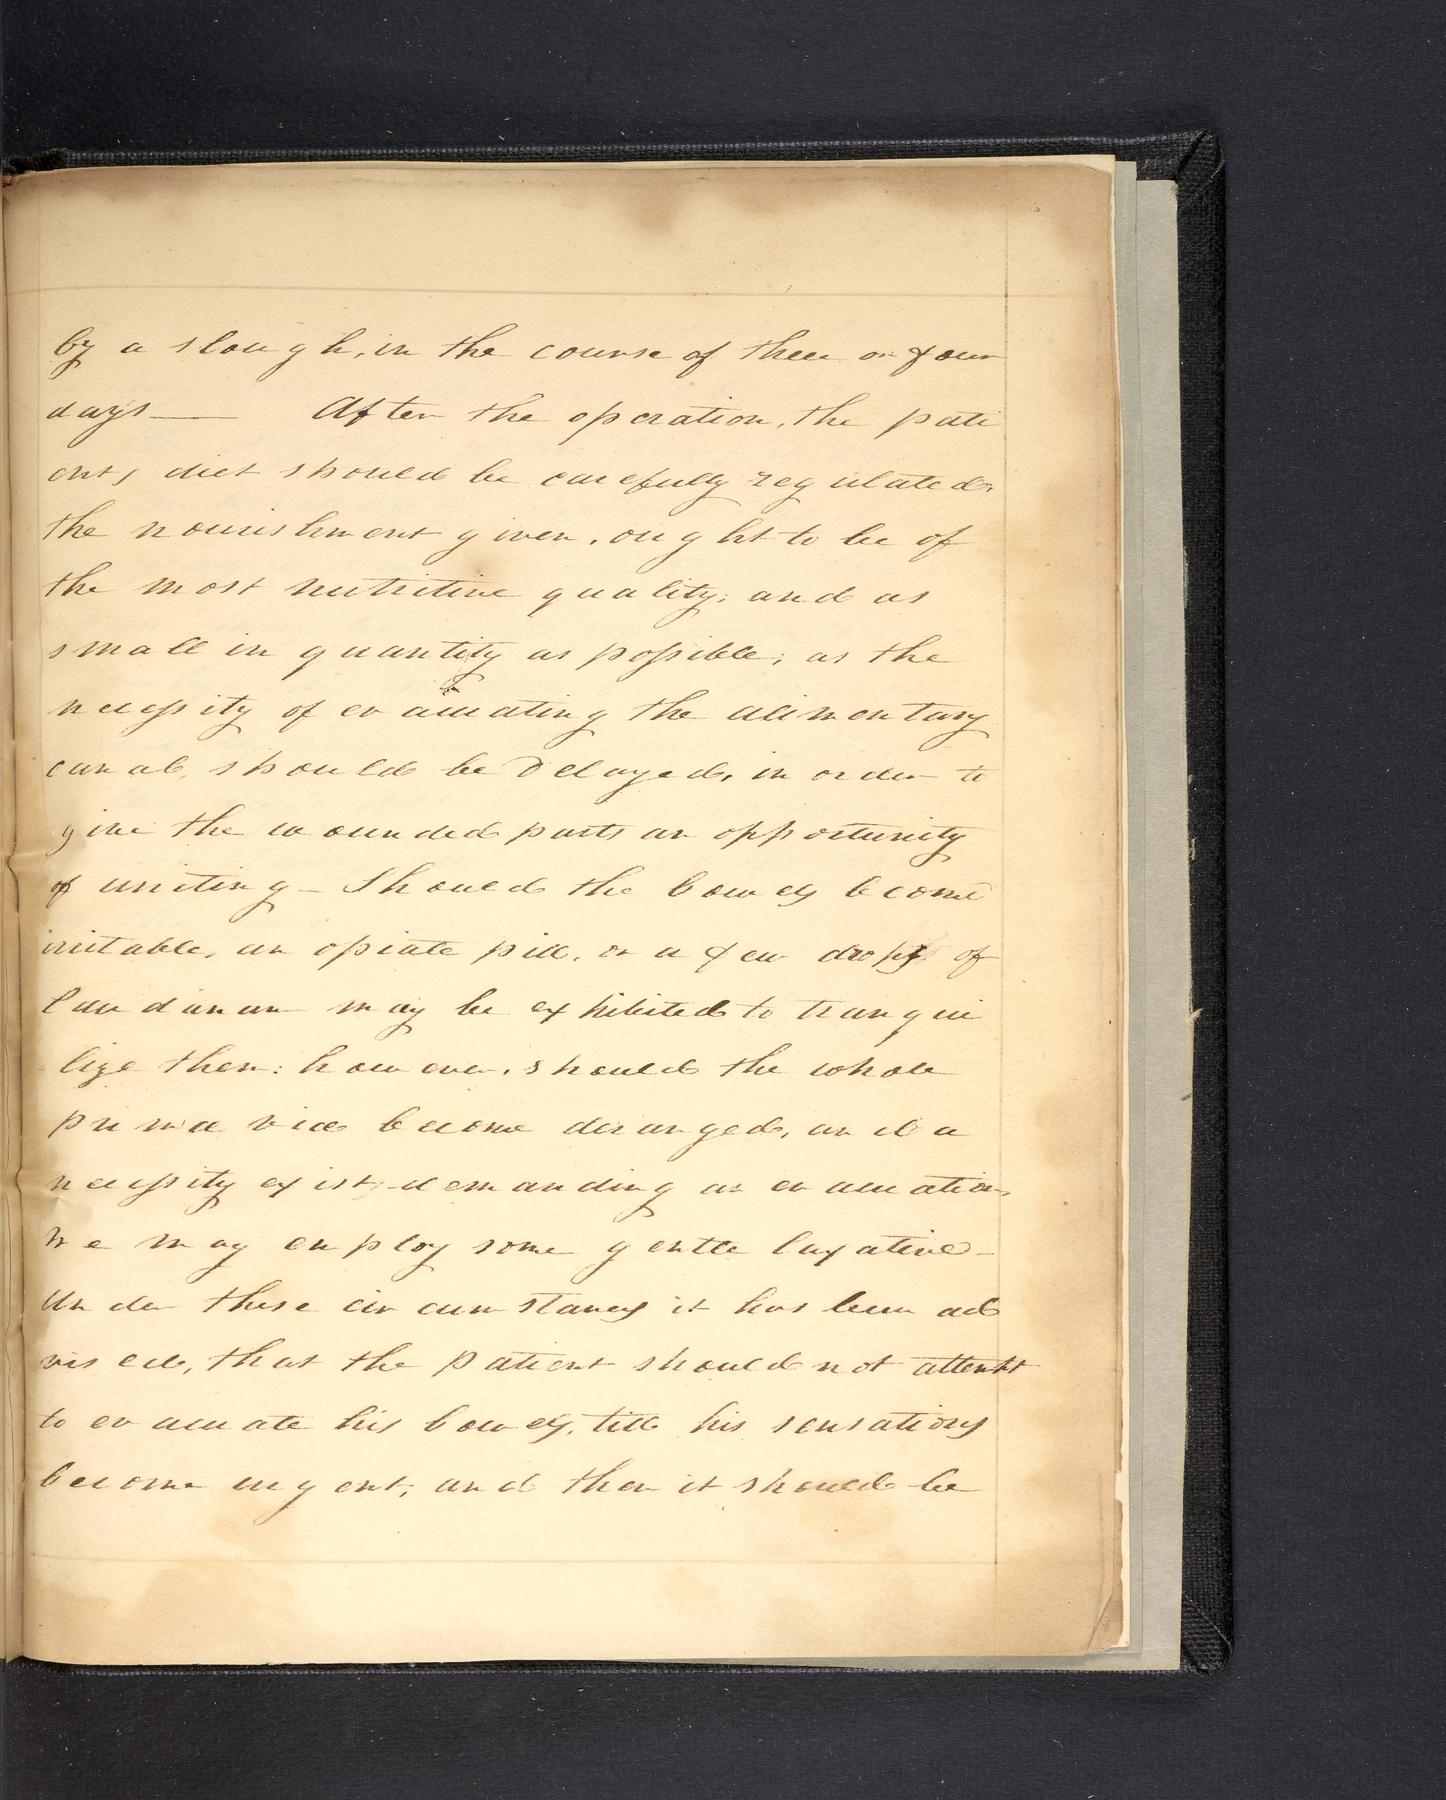 by a slough, in the course of three or four
days — After the operation, the pati
ents diet should be carefully regulated.
the nourishment given, ought to be of
the most nutritive quality; and as
small in quantity as possible; as the
necessity of evacuating the alimentary
canal, should be Delayed, in order to
give the wounded parts an opportunity
of uniting – Should the bowels become
irritable, an opiate pill, or a few drops of
laudanum may be exhibited to tranqui
lize them: however, should the whole
prima viae become deranged, and a
necessity exist, demanding an evacuation,
we may employ some gentle laxative –
Under these circumstances it has been ad
vised, that the patient should not attempt
to evacuate his bowels, till his sensations
become urgent; and then it should be